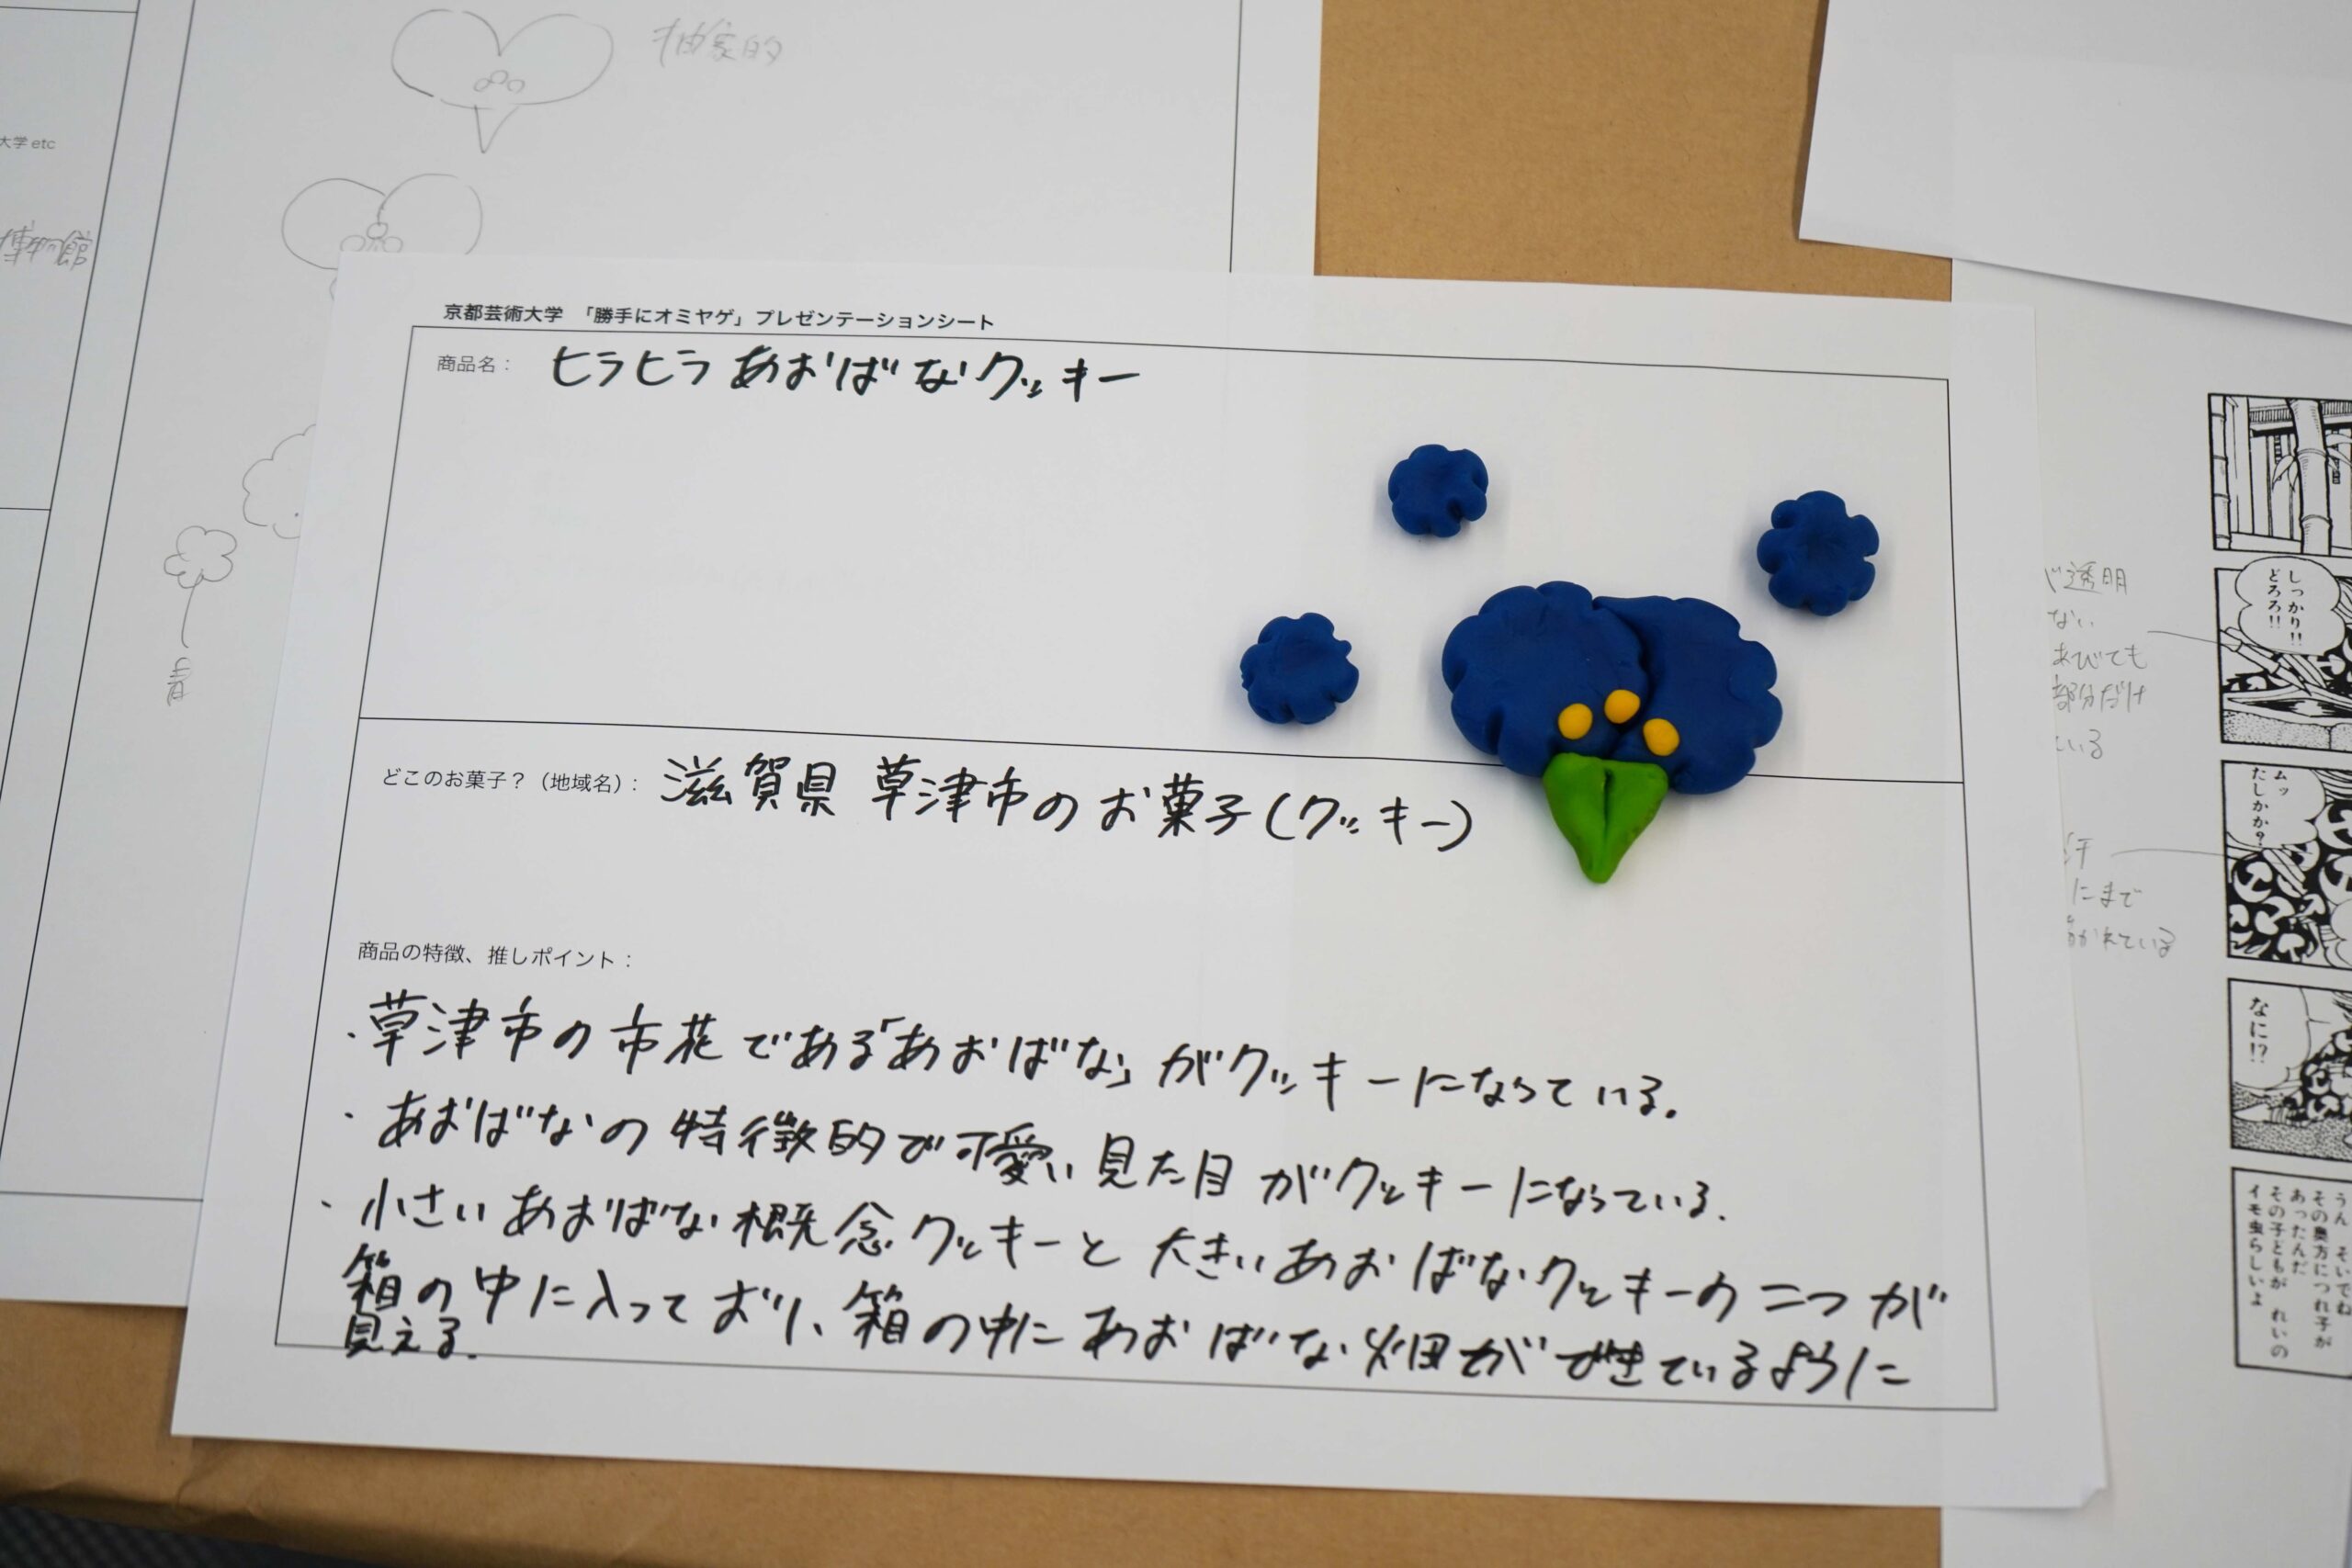 抽象的
大学 etc
博物館
青
京都芸術大学 「勝手にオミヤゲ」プレゼンテーションシート
商品名： ヒラヒラあおばなクッキー
どこのお菓子？（地域名）： 滋賀県 草津市のお菓子(クッキー)
商品の特徴、推しポイント：
・草津市の市花である「あおばな」がクッキーになっている。
・あおばなの特徴的で可愛い見た目がクッキーになっている.
・小さいあおばな概念クッキーと大きいあおばなクッキーの二つが
箱の中に入っており、箱の中にあおばな畑ができているように
見える.
透明
ない
あびても
部分だけ
ている
汗
にまで
かれている
しっかり!!
どろろ!!
ムッ
たしかか?
なに!?
うん そいでね
その奥方につれ子が
あったんだ
その子どもが れいの
イモ虫らしいよ